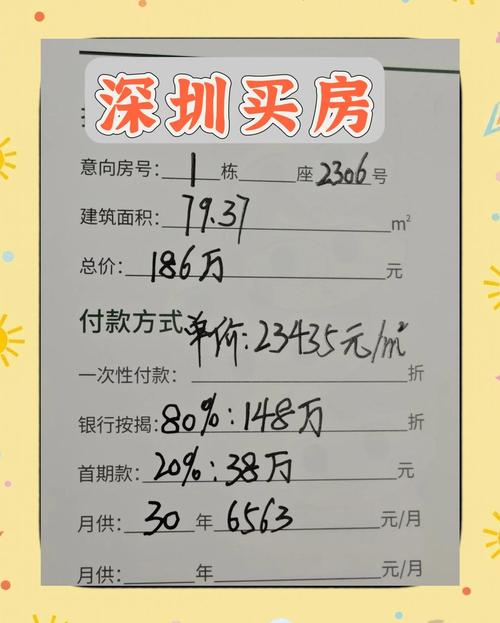 深圳买房
意向房号: 1 栋 座 2306 号
建筑面积: 79.37 m²
总价: 186万 元
付款方式 单价: 23435元/m²
一次性付款: 折
银行按揭: 80%: 148万 折
首期款: 20%: 38万 元
月供: 30 年 6563 元/月
月供: 年 元/月